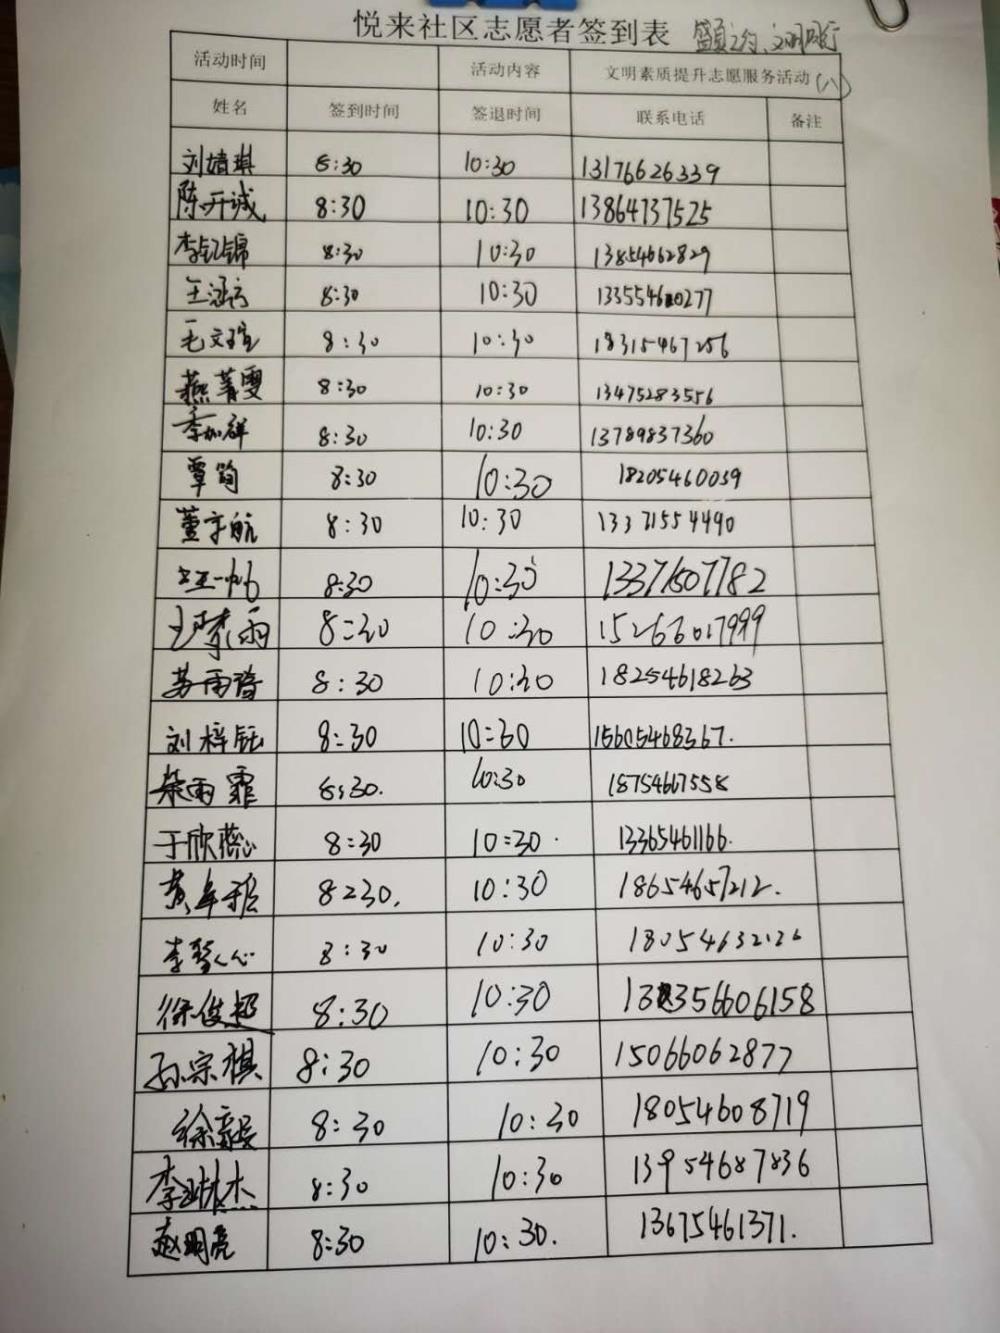 悦来社区志愿者签到表
活动时间 活动内容 文明素质提升志愿服务活动(八)
姓名 签到时间 签退时间 联系电话 备注
刘婧琪 8:30 10:30 13176626339
陈开诚 8:30 10:30 13864737525
李钇锦 8:30 10:30 13854662829
王涵 8:30 10:30 13355460277
毛文瑄 8:30 10:30 18315467256
燕菁雯 8:30 10:30 13475283556
季加祥 8:30 10:30 13789837360
覃筠 8:30 10:30 18205460039
董宇航 8:30 10:30 13371554490
王一帆 8:30 10:30 13371507782
王梦雨 8:30 10:30 15266017999
苏雨 8:30 10:30 18254618263
刘梓钰 8:30 10:30 15605468367.
柴雨霏 8:30. 10:30 18754667558
于欣蕊 8:30 10:30. 13365461166.
黄 8:30. 10:30 18654657212.
李 8:30 10:30 18054632126
徐俊超 8:30 10:30
孙宗祺 8:30 10:30 15066062877
徐 8:30 10:30 18054608719
李 杰 8:30 10:30 13954687836
赵明亮 8:30 10:30. 13675461371.